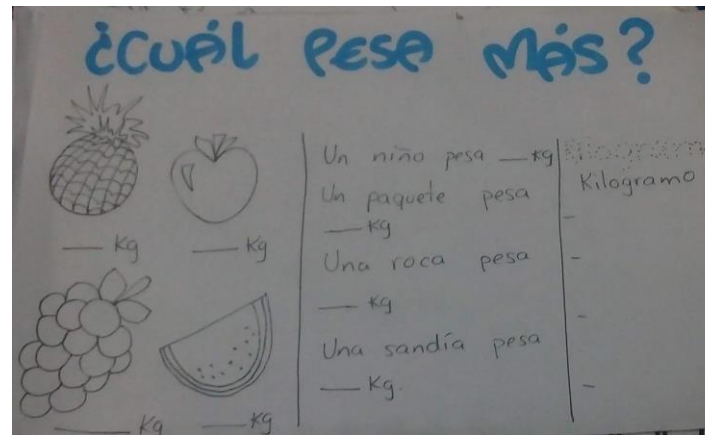 ¿CUÁL PESA MÁS?
___ Kg ___ Kg
___ Kg ___ Kg
Un niño pesa ___ Kg
Un paquete pesa
___ Kg
Una roca pesa
___ Kg
Una sandía pesa
___ Kg.
Kilogramo
-
-
-
-